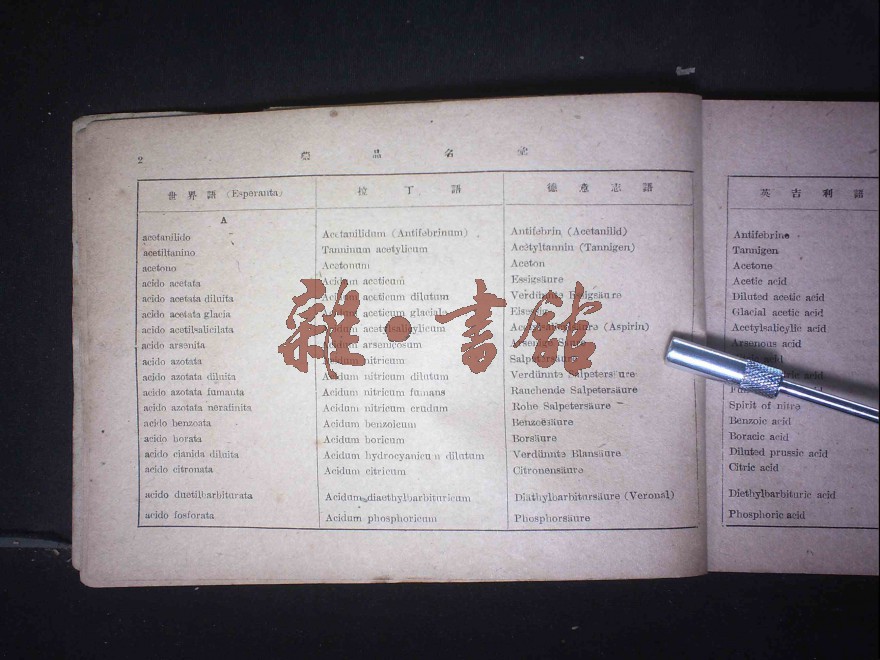 2
藥品名彙
世界語 (Esperanta) 拉丁語 德意志語 英吉利語
A
acetanilido Acetanilidum (Antifebrinum) Antifebrin (Acetanilid) Antifebrine
acetiltanino Tanninum acetylicum Acetyltannin (Tannigen) Tannigen
acetono Acetonum Aceton Acetone
acido acetata Acidum aceticum Essigsäure Acetic acid
acido acetata diluita Acidum aceticum dilutum Verdünnte Essigsäure Diluted acetic acid
acido acetata glacia Acidum aceticum glaciale Glacial acetic acid
acido acetilsalicilata Acidum acetylsalicylicum (Aspirin) Acetylsalicylic acid
acido arsenita Acidum arsenicosum Arsenige Säure Arsenous acid
acido azotata Acidum nitricum Salpetersäure acid
acido azotata diluita Acidum nitricum dilutum Verdünnte Salpetersäure acid
acido azotata fumanta Acidum nitricum fumans Rauchende Salpetersäure acid
acido azotata nerafinita Acidum nitricum crudum Rohe Salpetersäure Spirit of nitre
acido benzoata Acidum benzoicum Benzoësäure Benzoic acid
acido borata Acidum boricum Borsäure Boracic acid
acido cianida diluita Acidum hydrocyanicum dilutum Verdünnte Blausäure Diluted prussic acid
acido citronata Acidum citricum Citronensäure Citric acid
acido duetilbarbiturata Acidum diaethylbarbituricum Diäthylbarbitursäure (Veronal) Diethylbarbituric acid
acido fosforata Acidum phosphoricum Phosphorsäure Phosphoric acid
雜·書館